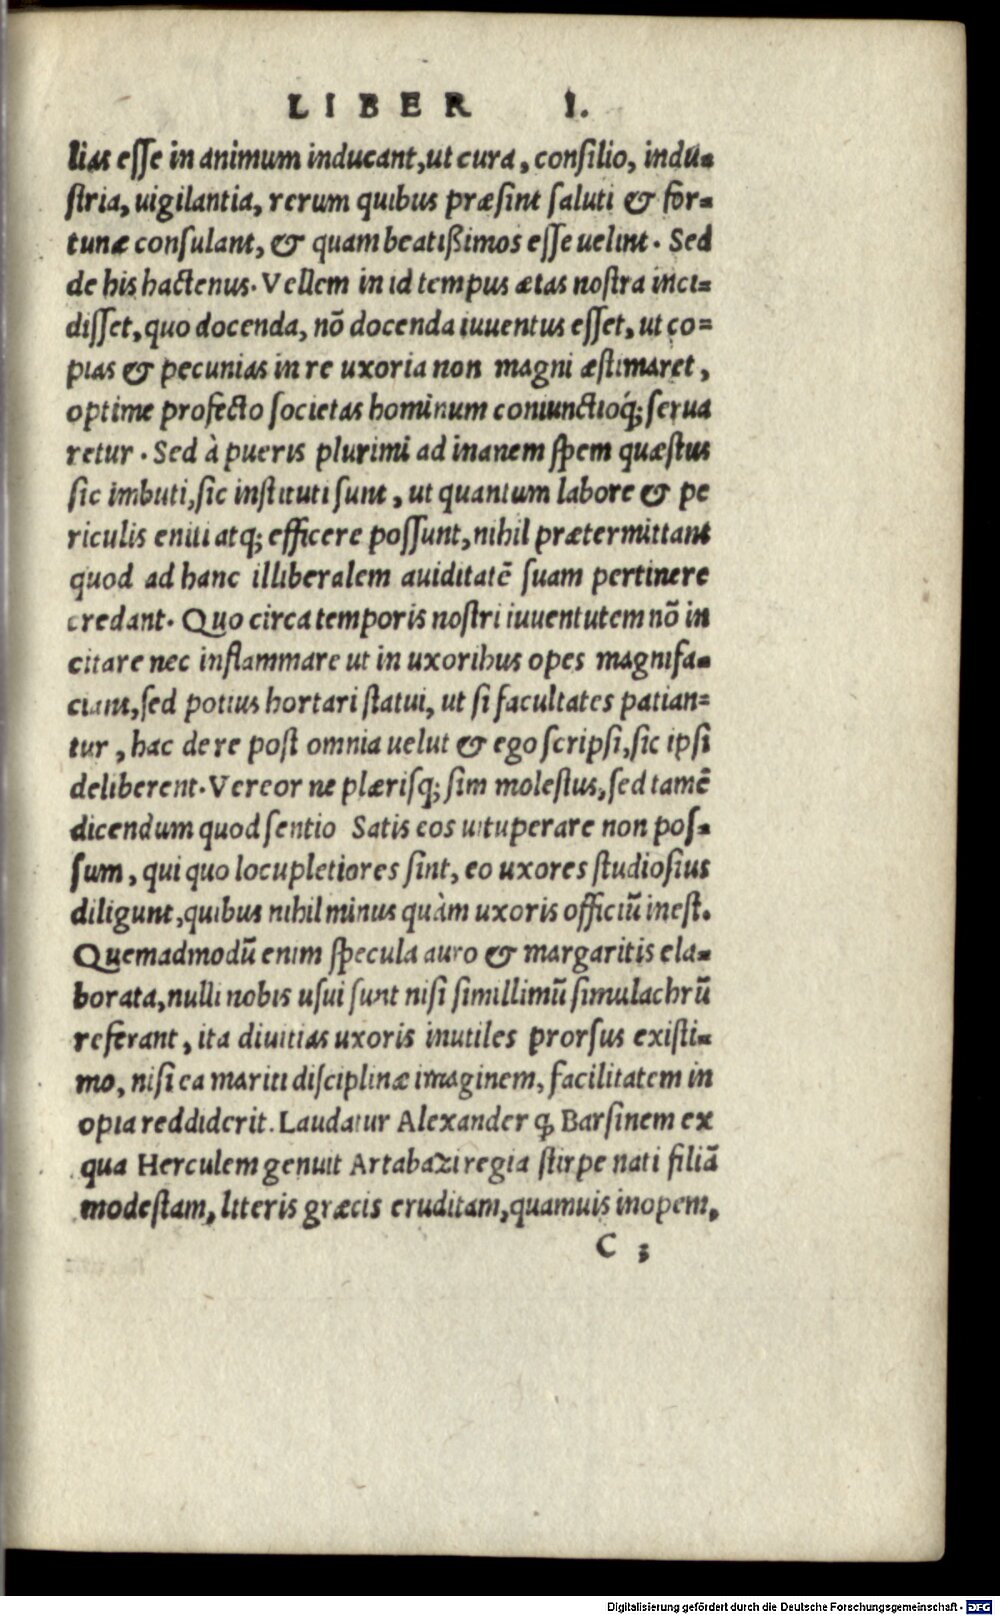 LIBER I.
lias esse in animum inducant, ut cura, consilio, indu-
stria, uigilantia, rerum quibus præsint saluti & for-
tunæ consulant, & quam beatißimos esse uelint. Sed
de his hactenus. Vellem in id tempus ætas nostra inci-
disset, quo docenda, nõ docenda iuuentus esset, ut co-
pias & pecunias in re uxoria non magni æstimaret,
optime profecto societas hominum coniunctioq́; serua
retur. Sed à pueris plurimi ad inanem spem quæstus
sic imbuti, sic instituti sunt, ut quantum labore & pe
riculis eniti atq; efficere possunt, nihil prætermittant
quod ad hanc illiberalem auiditatẽ suam pertinere
credant. Quo circa temporis nostri iuuentutem nõ in
citare nec inflammare ut in uxoribus opes magnifa-
ciant, sed potius hortari statui, ut si facultates patian-
tur, hac de re post omnia uelut & ego scripsi, sic ipsi
deliberent. Vereor ne plærisq; sim molestus, sed tamẽ
dicendum quod sentio Satis eos uituperare non pos-
sum, qui quo locupletiores sint, eo uxores studiosius
diligunt, quibus nihil minus quàm uxoris officiũ inest.
Quemadmodũ enim specula auro & margaritis ela-
borata, nulli nobis usui sunt nisi simillimũ simulachrũ
referant, ita diuitias uxoris inutiles prorsus existi-
mo, nisi ea mariti disciplinæ imaginem, facilitatem in
opia reddiderit. Laudatur Alexander ꝙ Barsinem ex
qua Herculem genuit Artabazi regia stirpe nati filiã
modestam, literis græcis eruditam, quamuis inopem,
C 3
Digitalisierung gefördert durch die Deutsche Forschungsgemeinschaft - DFG